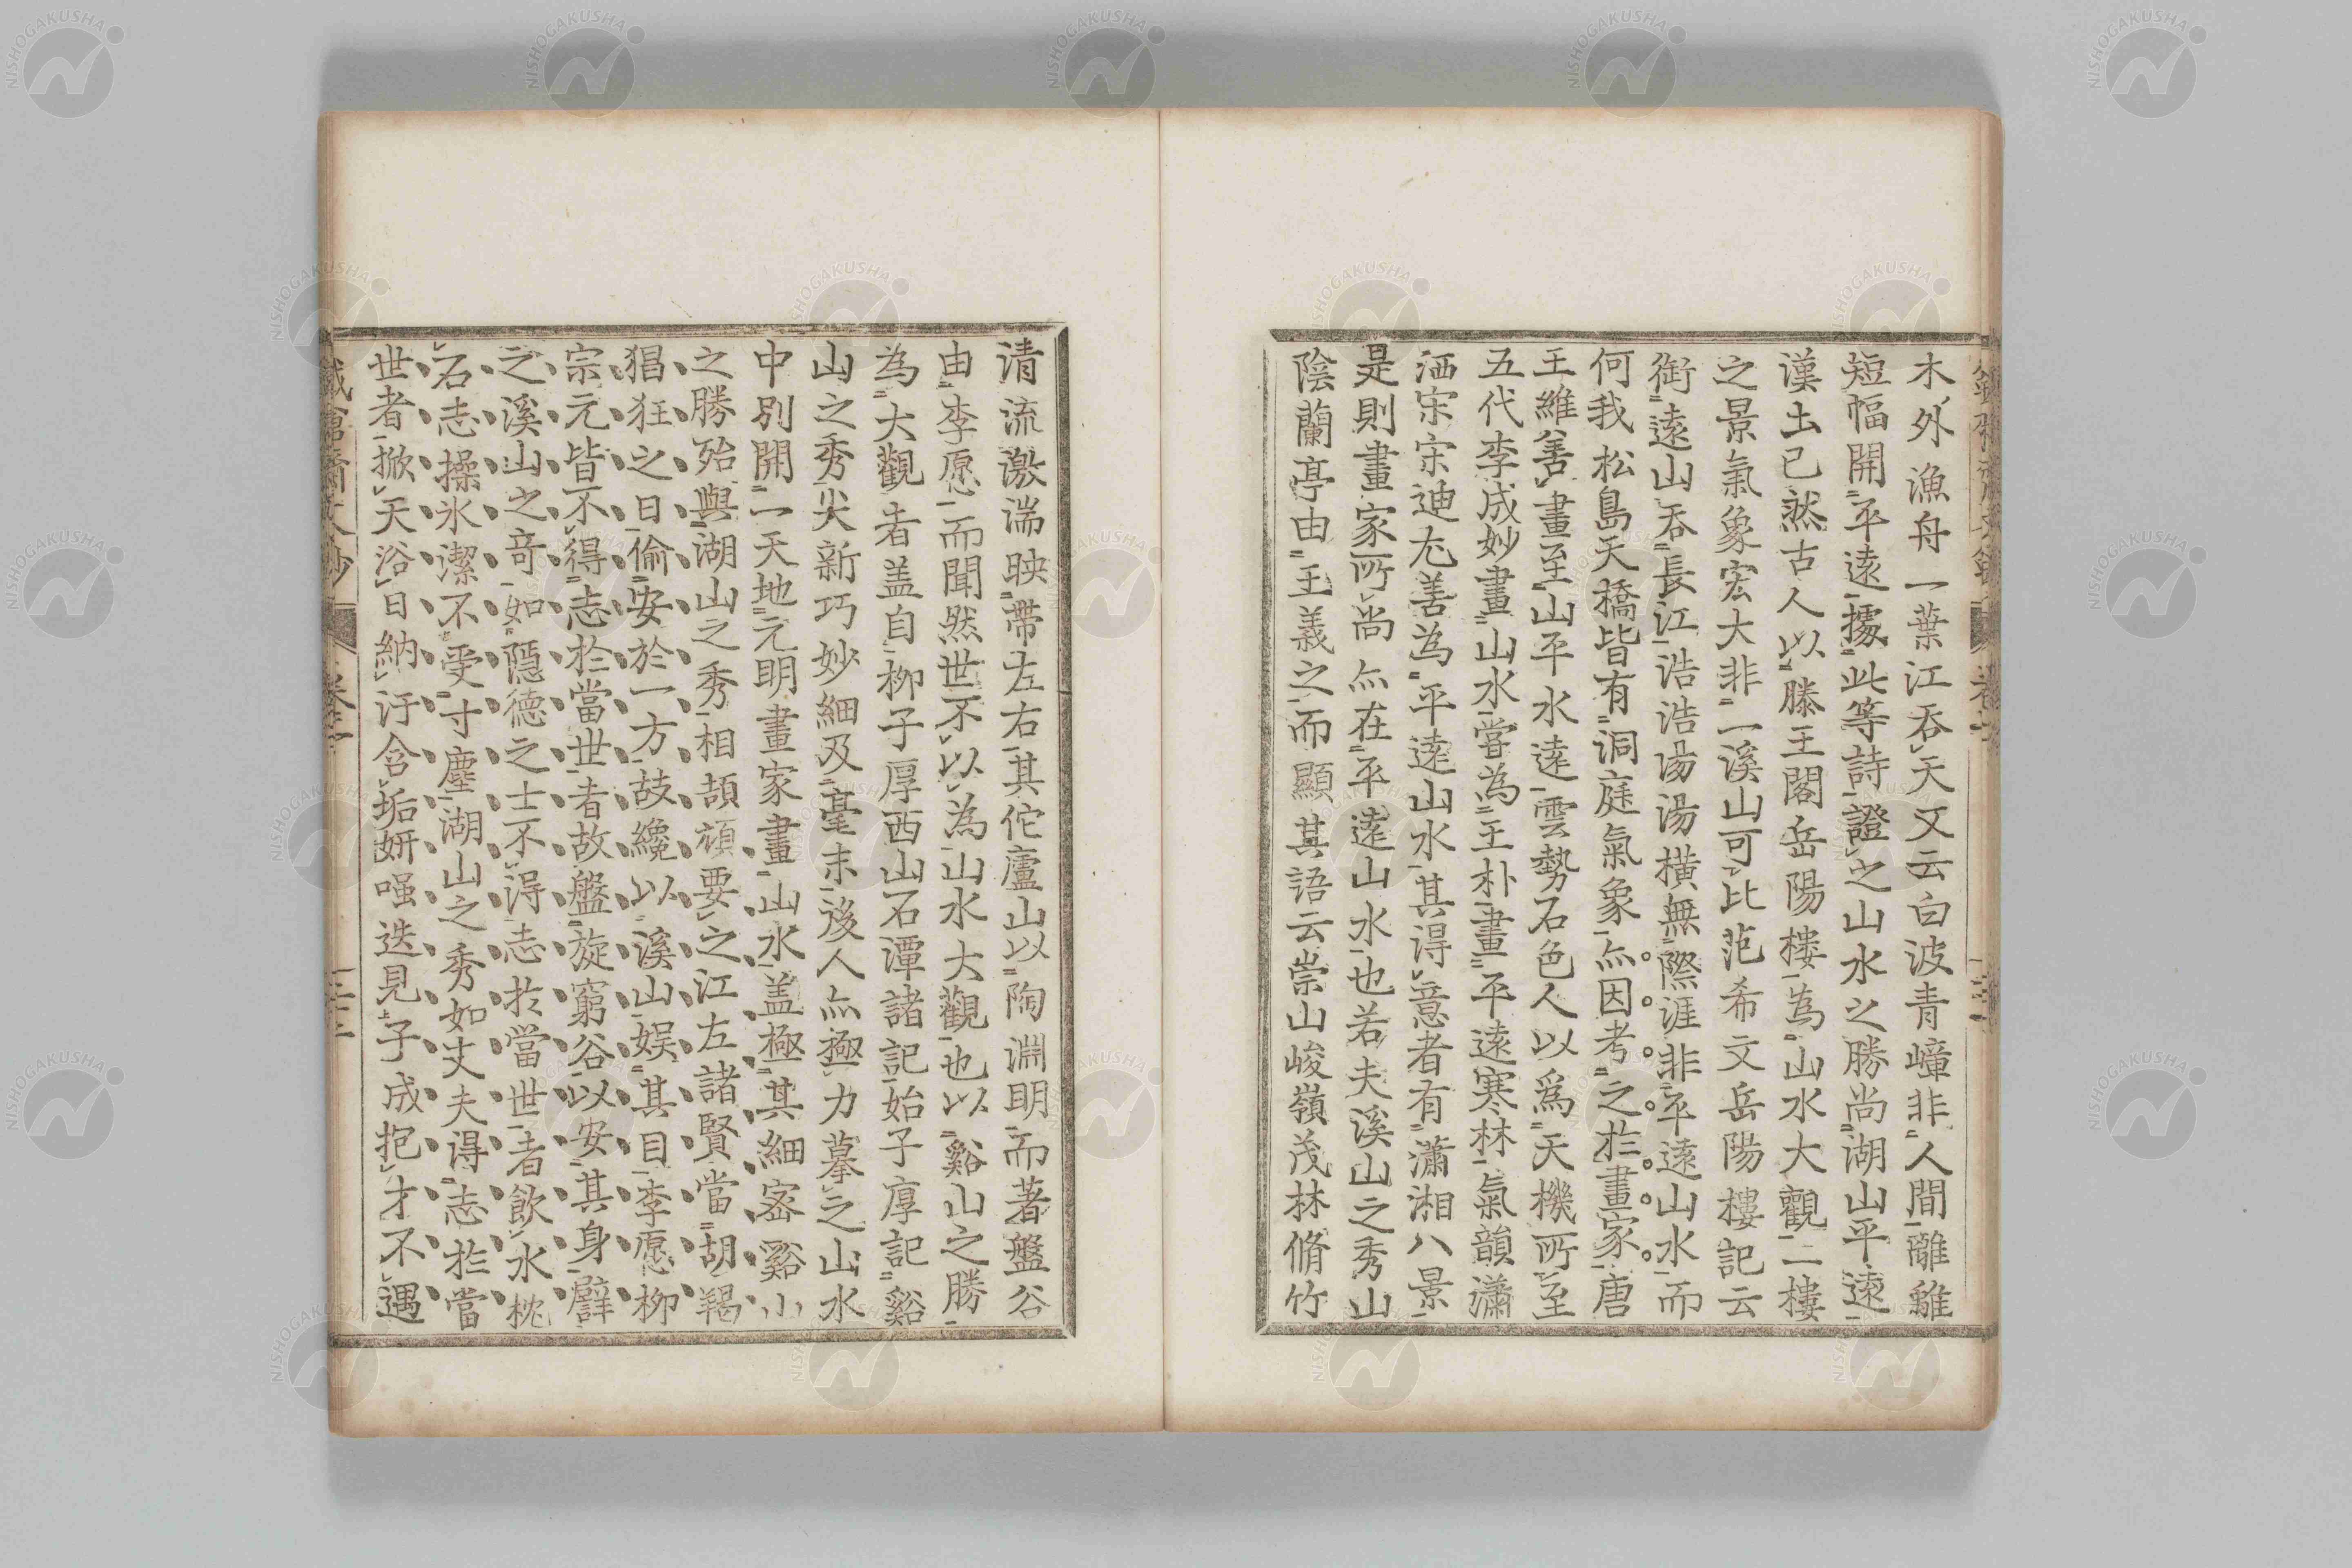 木外漁舟一葉江吞天又云白波青嶂非人間離離
短幅開平遠據此等詩證之山水之勝尚湖山平遠
漢土已然古人以滕王閣岳陽樓為山水大觀二樓
之景氣象宏大非一溪山可比范希文岳陽樓記云
銜遠山吞長江浩浩湯湯橫無際涯非平遠山水而
何我松島天橋皆有洞庭氣象亦因考之於畫家唐
王維善畫至山平水遠雲勢石色人以爲天機所至
五代李成妙畫山水嘗為王朴畫平遠寒林氣韻瀟
洒宋宋迪尤善為平遠山水其得意者有瀟湘八景
是則畫家所尚亦在平遠山水也若夫溪山之秀山
陰蘭亭由王義之而顯其語云崇山峻嶺茂林脩竹
清流激湍映帶左右其佗廬山以陶淵明而著盤谷
由李愿而聞然世不以為山水大觀也以谿山之勝
為大觀者盖自柳子厚西山石潭諸記始子厚記谿
山之秀尖新巧妙細及毫末後人亦極力摹之山水
中別開一天地元明畫家畫山水盖極其細密谿山
之勝殆與湖山之秀相頡頏要之江左諸賢當胡羯
猖狂之日偷安於一方故纔以溪山娛其目李愿柳
宗元皆不得志於當世者故盤旋窮谷以安其身
之溪山之奇如隱德之士不得志於當世者飲水枕
石志操氷潔不受寸塵湖山之秀如丈夫得志於當
世者掀天浴日納汙含垢妍嗤迭見子成抱才不遇
NISHOGAKUSHA